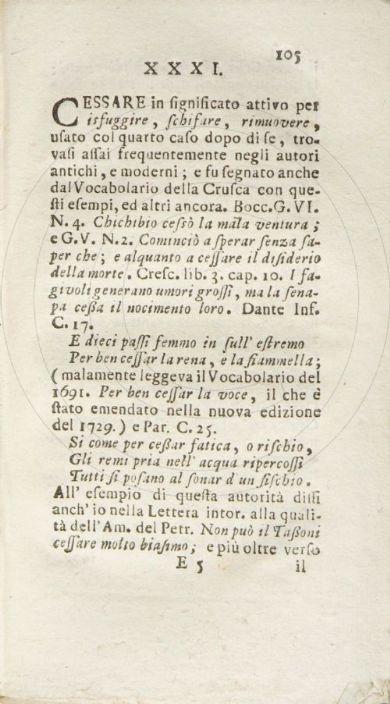 105
XXXI.
CESSARE in significato attivo per
isfuggire, schifare, rimuovere,
usato col quarto caso dopo di se, tro-
vasi assai frequentemente negli autori
antichi, e moderni; e fu segnato anche
dal Vocabolario della Crusca con que-
sti esempi, ed altri ancora. Bocc. G. VI.
N. 4. Chichibio cessò la mala ventura;
e G. V. N. 2. Cominciò a sperar senza sa-
per che; e alquanto a cessare il disiderio
della morte. Cresc. lib. 3. cap. 10. I fa-
givoli generano umori grossi, ma la sena-
pa cessa il nocimento loro. Dante Inf.
C. 17.
E dieci passi femmo in sull' estremo
Per ben cessar la rena, e la fiammella;
(malamente leggeva il Vocabolario del
1691. Per ben cessar la voce, il che è
stato emendato nella nuova edizione
del 1729.) e Par. C. 25.
Si come per cessar fatica, o rischio,
Gli remi pria nell' acqua ripercossi
Tutti si posano al sonar d un fischio.
All' esempio di questa autorità dissi
anch' io nella Lettera intor. alla quali-
tà dell' Am. del Petr. Non può il Tassoni
cessare molto biasimo; e più oltre verso
E 5 il